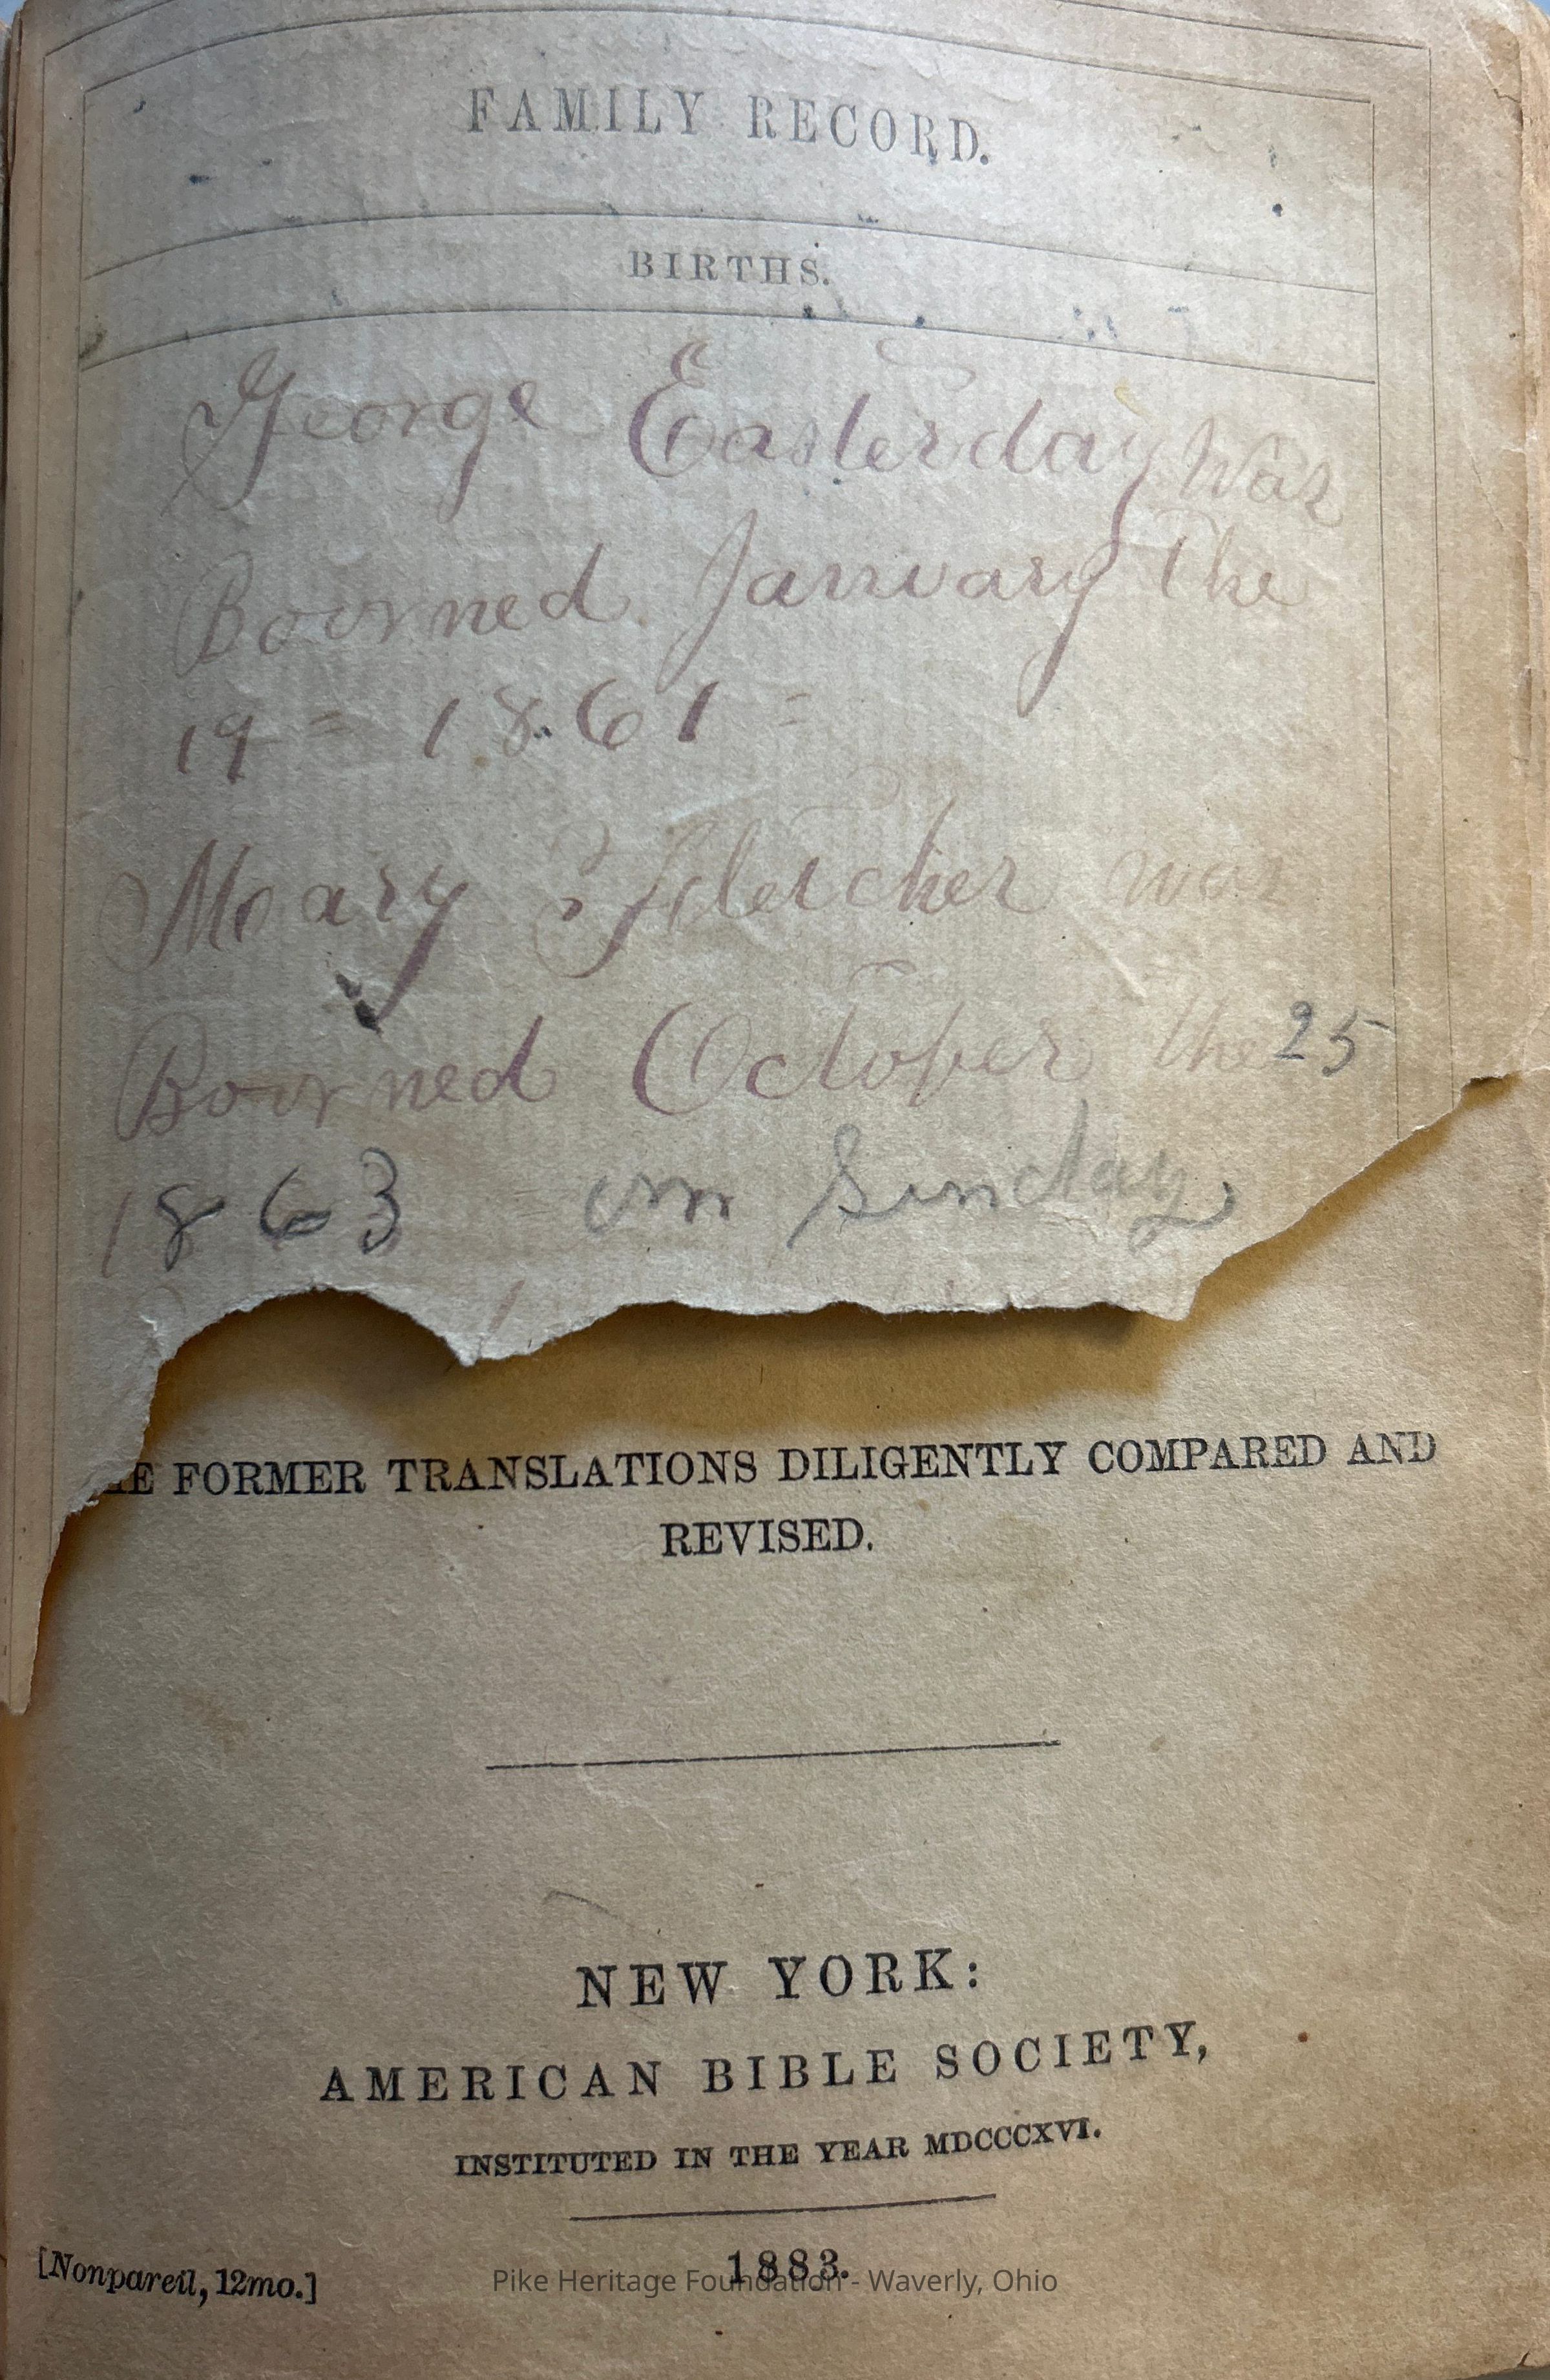 FAMILY RECORD.
BIRTHS.
George Easterday was
Boorned January the
19 = 1861 =
Mary Fletcher was
Boorned October the 25
1863 on Sunday
FORMER TRANSLATIONS DILIGENTLY COMPARED AND
REVISED.
NEW YORK:
AMERICAN BIBLE SOCIETY,
INSTITUTED IN THE YEAR MDCCCXVI.
1883.
[Nonpareil, 12mo.]
Pike Heritage Foundation - Waverly, Ohio